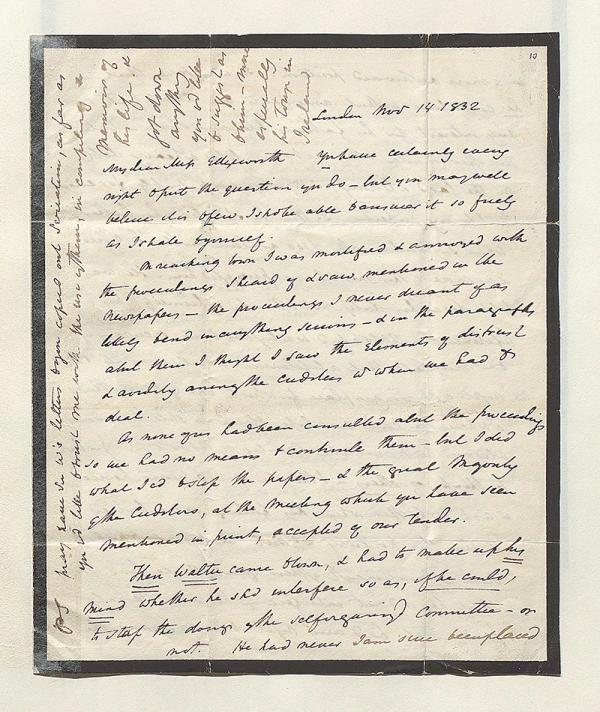 10
London Nov 14 1832
My dear Miss Edgeworth You have certainly every
right to put the question you do – but you may well
believe it is of few I shd be able to answer it so freely
as I shall to yourself.
On reaching town I was mortified & annoyed with
the proceedings I heard of & saw mentioned in the
newspapers – the proceedings I never dreamt of as
likely to end in anything serious – & in the paragraphs
abt them I thought I saw the Elements of distrust
& avidity among the Creditors w whom we had to
deal.
As none of us had been consulted abt the proceedings
so we had no means to controule them – but I did
what I cd to stop the papers – & the great Majority
of the Creditors, at the Meeting which you have seen
mentioned in print, accepted of our tender.
Then Walter came to town, & had to make up his
mind whether he shd interfere so as, if he could,
to stop the doings of the Committee – or
not. He had never I am sure been placed
PS pray have Sir W's letters to you copied out seriatim, as far as
you'd like to trust me with the use of them, in compiling a
Memoir of
his life &
jot down
anything
you'd like
to suggest as
to him – more
especially
his tour in
Ireland